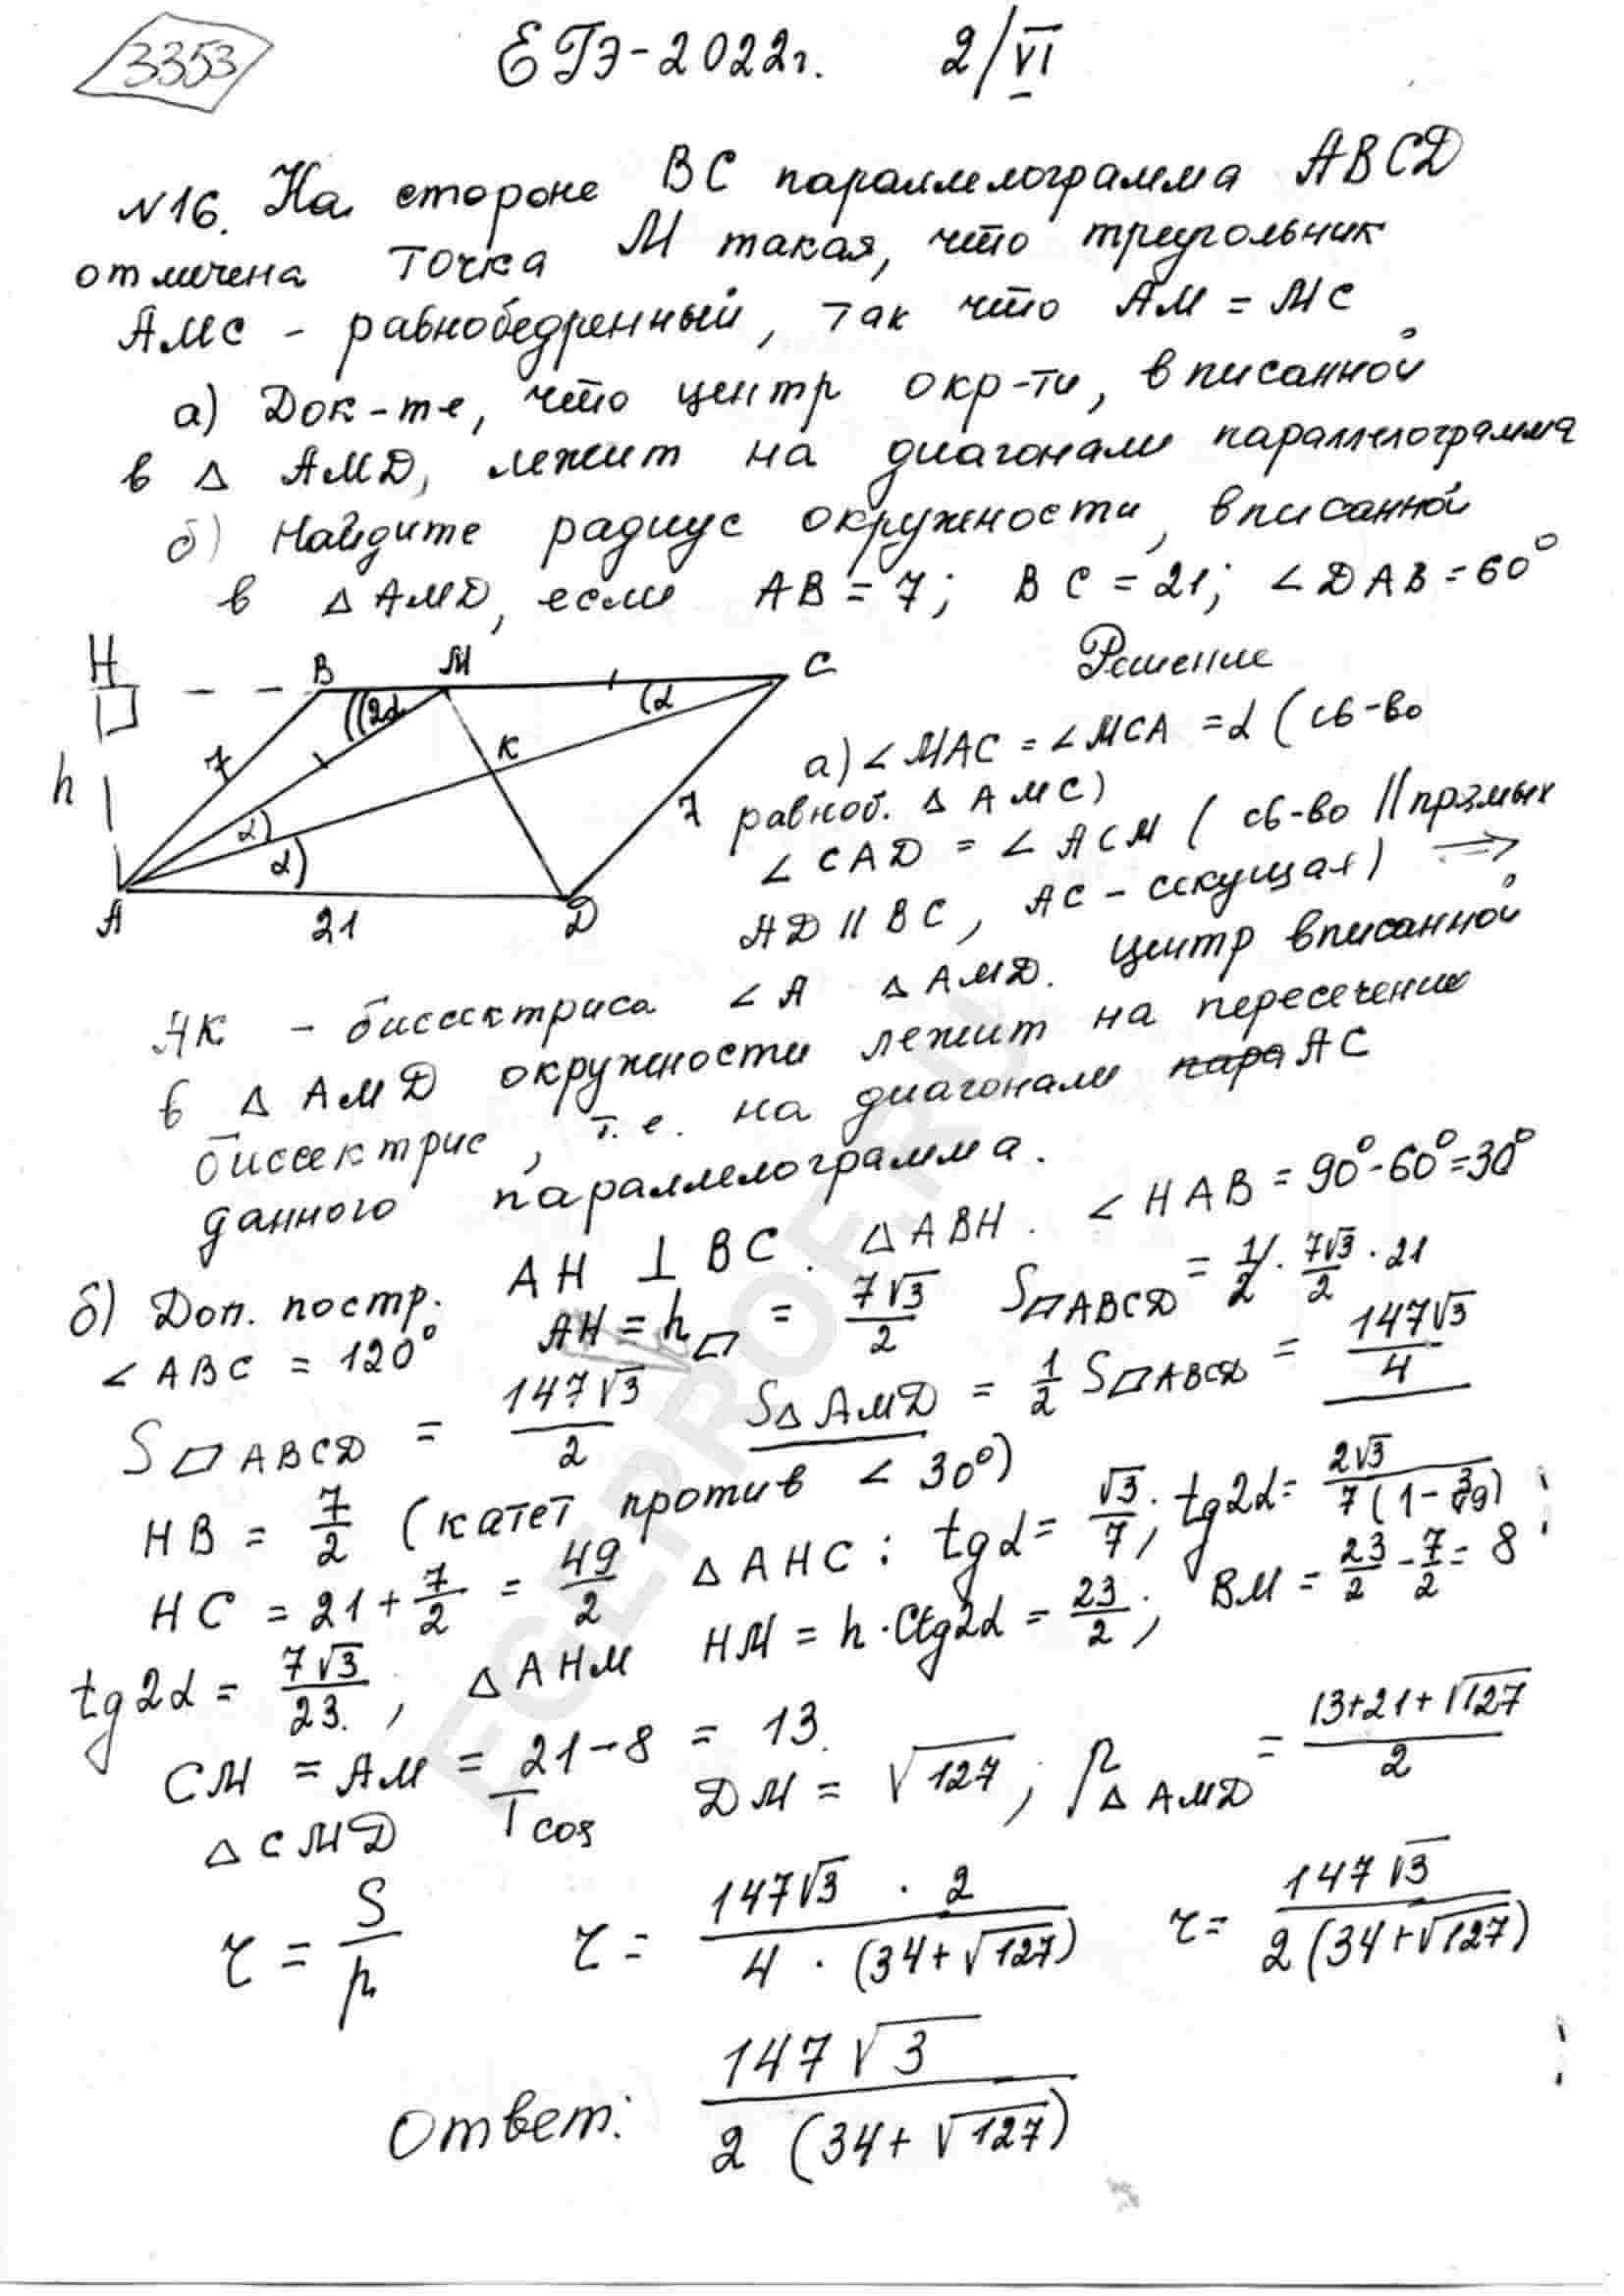 3353
ЕГЭ-2022г. 2/VI
№16. На стороне BC параллелограмма ABCD
отмечена точка M такая, что треугольник
AMC - равнобедренный, так что AM = MC
а) Док-те, что центр окр-ти, вписанной
в △ AMD, лежит на диагонали параллелограмма
б) Найдите радиус окружности, вписанной
в △AMD, если AB = 7; BC = 21; ∠DAB = 60°
H B M C
2α α
7 K
h 7
α
α
A 21 D
Решение
а) ∠MAC = ∠MCA = α (св-во
равноб. △ AMC)
∠CAD = ∠ACM (св-во ∥ прямых
AD ∥ BC, AC - секущая) ⇒
AK - биссектриса ∠A △AMD. Центр вписанной
в △ AMD окружности лежит на пересечении
биссектрис, т.е. на диагонали AC
данного параллелограмма.
б) Доп. постр. AH ⊥ BC. △ABH. ∠HAB = 90°-60°=30°
∠ABC = 120° AH = h▱ = 7√3/2 S▱ABCD = 1/2 · 7√3/2 · 21
S▱ABCD = 147√3/2 S△AMD = 1/2 S▱ABCD = 147√3/4
HB = 7/2 (катет против ∠30°)
HC = 21 + 7/2 = 49/2 △AHC: tgα = √3/7; tg2α = 2√3/7(1 - 3/49);
tg2α = 7√3/23; △AHM HM = h·Ctg2α = 23/2; BM = 23/2 - 7/2 = 8
CM = AM = 21-8 = 13.
△CMD T cos DM = √127; p△AMD = 13+21+√127/2
r = S/p r = 147√3 · 2/4 · (34+√127) r = 147√3/2(34+√127)
Ответ: 147√3/2 (34+√127)
EGEPROF.RU